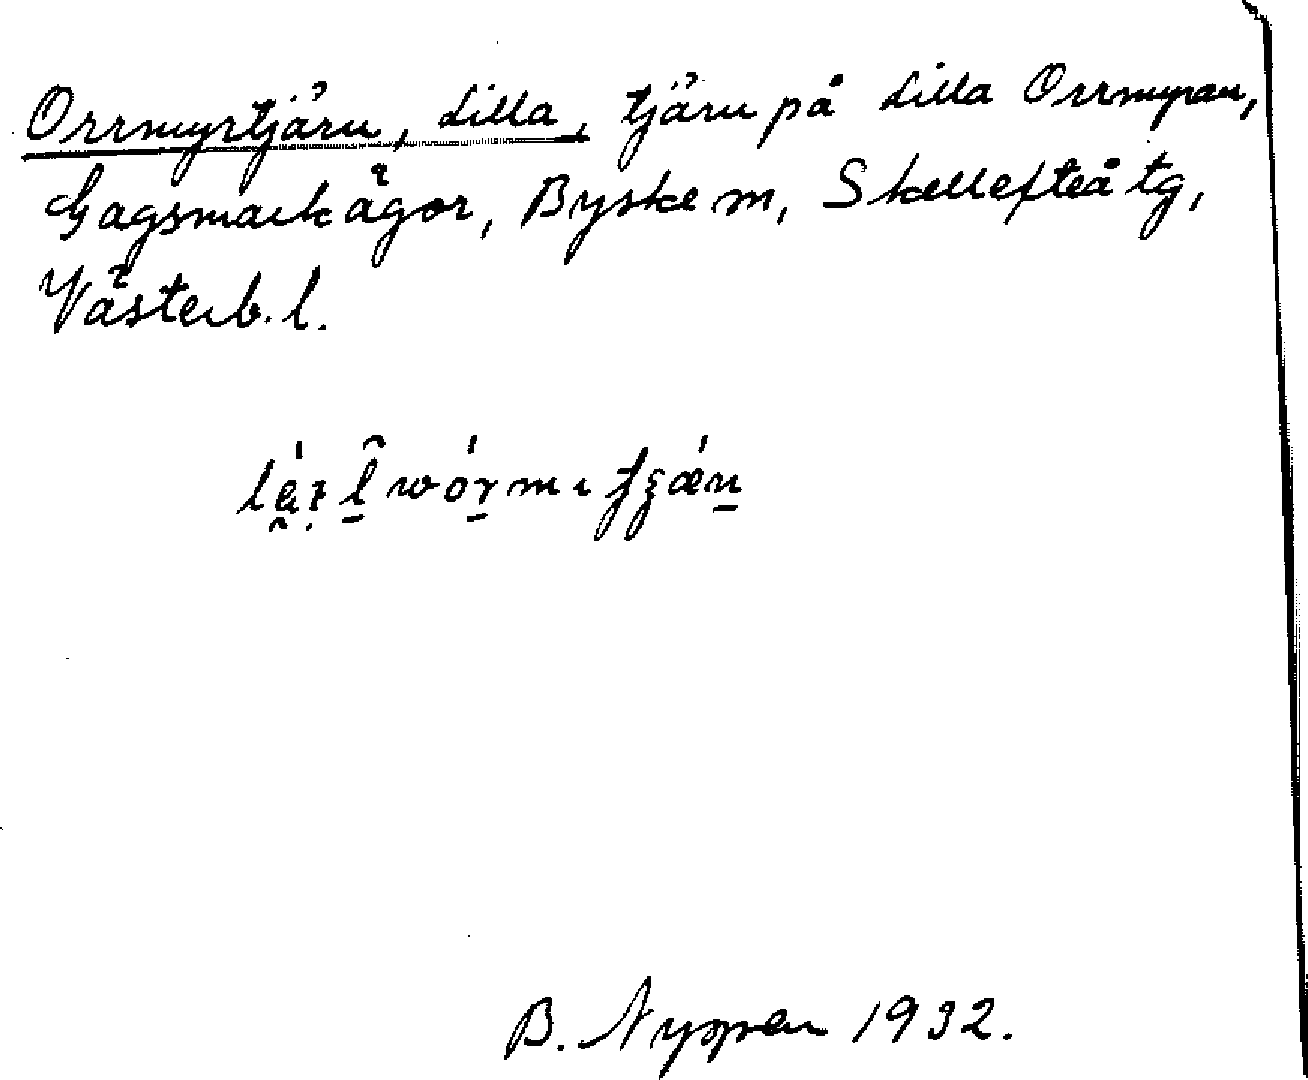 Orrmyrtjärn, Lilla, tjärn på Lilla Orrmyran,
Gagsmark ägor, Byske m, Skellefteå tg,
Västerb. l.
B. Nyppen 1932.